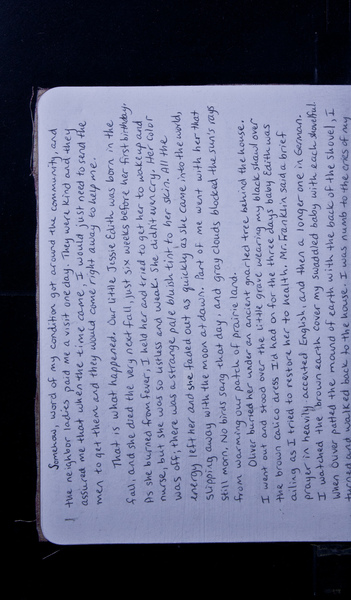 Somehow, word of my condition got around the community, and
the neighbor ladies paid me a visit one day. They were kind and they
assured me that when the time came, I would just need to send the
men to get them and they would come right away to help me.
That is what happened. Our little Jessie Edith was born in the
fall, and she died the very next fall, just six weeks before her first birthday.
As she burned from fever, I held her and tried to get her to wake up and
nurse, but she was so listless and weak. She didn't even cry. Her color
was off; there was a strange pale bluish tint to her skin. All the
energy left her and she faded out as quickly as she came into the world,
slipping away with the moon at dawn. Part of me went with her that
still morn. No birds sang that day, and gray clouds blocked the sun's rays
from warming our patch of prairie land.
Oliver buried her under an ancient gnarled tree behind the house.
I went out and stood over the little grave wearing my black shawl over
the brown calico dress I'd had on for the three days baby Edith was
ailing as I tried to restore her to health. Mr. Franklin said a brief
prayer in heavily accented English, and then a longer one in German.
I watched the brown earth cover my swaddled baby with each shovelful.
When Oliver patted the mound of earth with the back of the shovel, I
turned and walked back to the house. I was numb to the cries of my